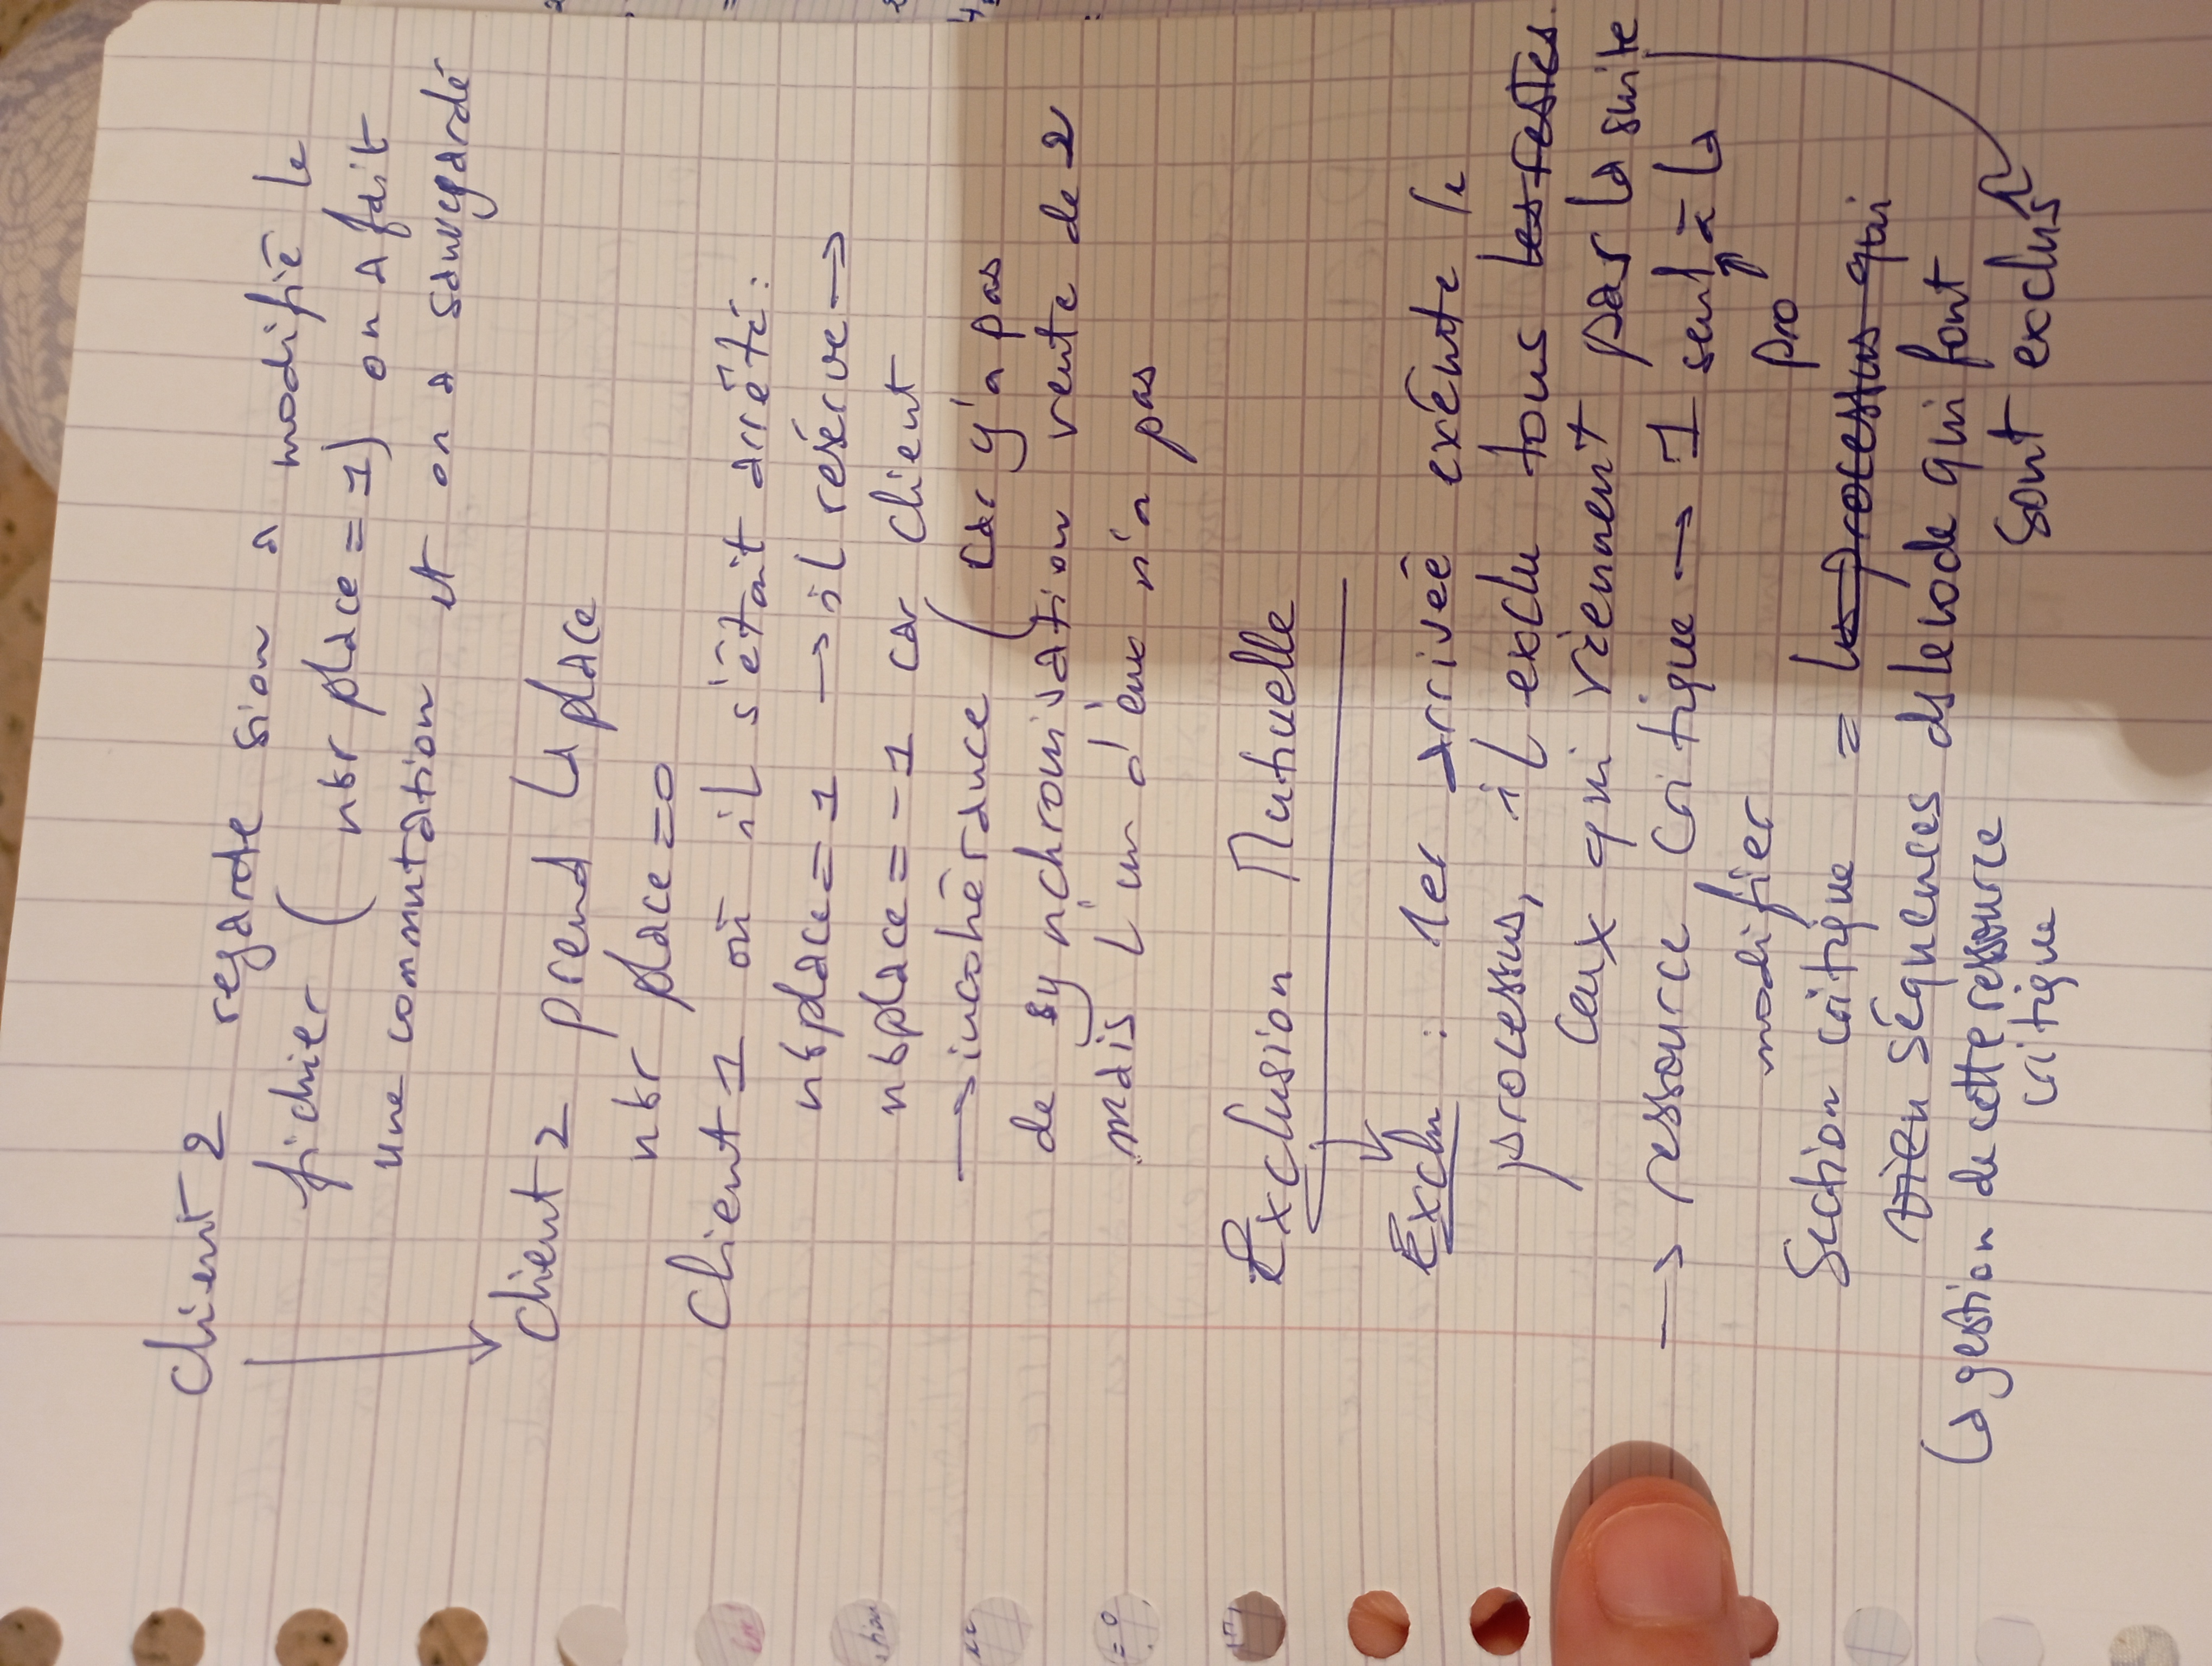 Client 2 regarde sion a modifié le
fichier ( nbr place = 1) on a fait
une commutation et on a sauvegardé
Client 2 prend la place
nbr place = 0
Client 1 où il s'était arrêté :
nbplace = 1 → il resérve →
nbplace = -1 car client
→ incohérance ( car y'a pas
de synchronisation vente de 2
mais l'un d'eux n'a pas
Exclusion Mutuelle
Exclu : 1er arriveé exécute le
processus, il exclu tous les restes.
ceux qui viennent par la suite
→ ressource critique → 1 seul à la
modifier
pro
Section critique = les processus qui
séquences ds le code qui font
↳ gestion de cette ressource
critique
sont exclus